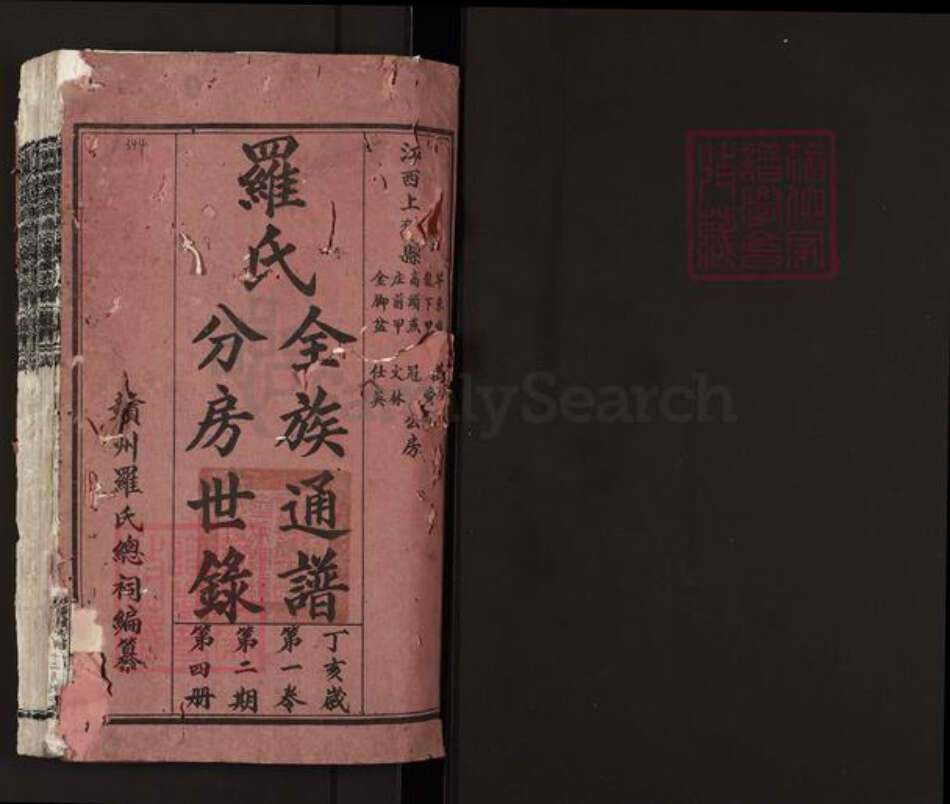 江西上 縣
高頭燕 冠
庄前甲 文林
金脚盆 仕英
公房
羅氏
全族通譜
分房世錄
丁亥歲
第一卷
第二期
第四册
贛州羅氏總祠編纂
344
FamilySearch